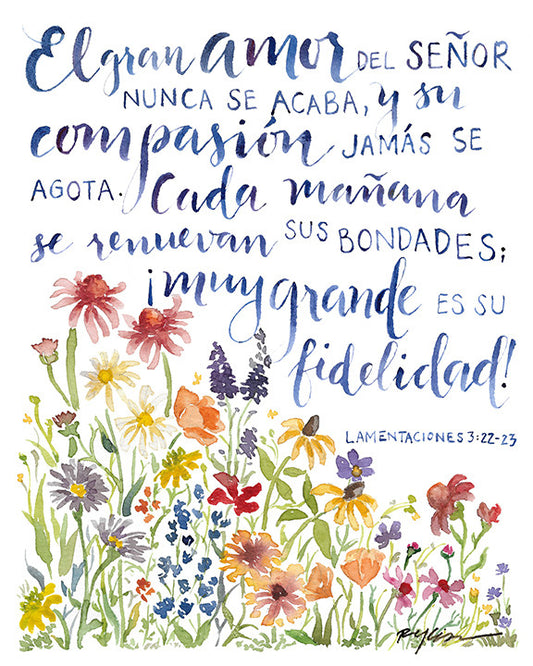 El gran amor DEL SEÑOR
NUNCA SE ACABA, y su
compasión JAMÁS SE
AGOTA. Cada mañana
se renuevan SUS BONDADES;
¡muy grande ES SU
fidelidad!
LAMENTACIONES 3:22-23